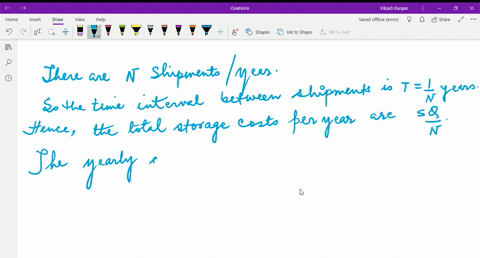 OneNote
Vikash Ranjan
File Home Insert Draw View Help
Saved offline (error) Share
Shapes Ink to Shape Ink to Text
There are N shipments/year.
So the time interval between shipments is T = 1/N years.
Hence, the total storage costs per year are sQ/N.
The yearly